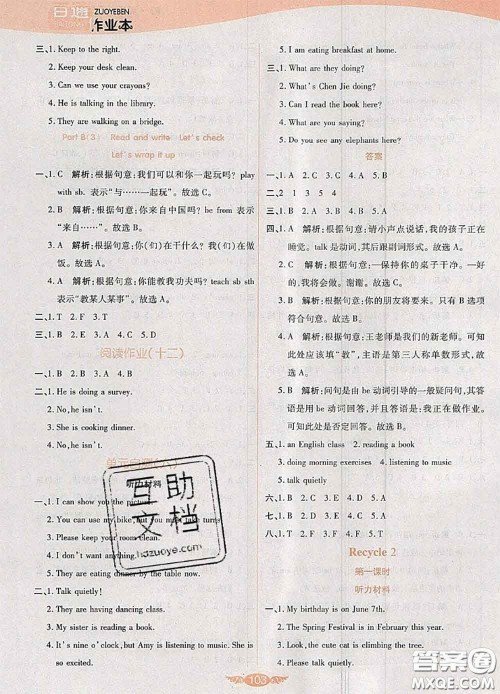 百题
ZUOYEBEN
作业本
三、1. Keep to the right.
2. Keep your desk clean.
3. Can we use your crayons?
4. He is talking in the library.
5. They are walking on a bridge.
Part B(3) Read and write Let's check
Let's wrap it up
一、1. C 解析:根据句意:我们可以和你一起玩吗? play
with sb. 表示“与……一起玩”。故选 C。
2. B 解析:根据句意:你来自中国吗? be from 表示
“来自……”。故选 B。
3. A 解析:根据句意:你(们)在干什么? 我(们)在做
饭。故选 A。
4. A 解析:根据句意:你能教我功夫吗? teach sb sth
表示“教某人某事”。故选 A。
二、1. T 2. F 3. T 三、1. B 2. C 3. A 4. D
阅读作业(十二)
一、1. T 2. F 3. F
二、1. He is doing a survey.
2. No, he isn't.
3. She is cooking dinner.
4. No, he isn't.
听力材料
一、1. I can show you the picture
2. You can use my bike, but you must take turns
3. I don't want anything.
4. They are eating dinner by the table now.
二、1. Talk quietly!
2. They are having dancing class.
3. My sister is reading a book.
4. It's nine o'clock, but Amy is listening to music. She is
so excited.
5. I am eating breakfast at home.
三、1. What are they doing?
2. What's Chen Jie doing?
3. Can I read the book here?
4. What are you saying?
5. Do you see any elephants here?
答案
一、1. B 2. A 3. A 4. B
二、2 1 3 5 4
三、1. A 2. B 3. A 4. B 5. A
四、1. A 解析:根据句意:请小声点说话,我的孩子正在
睡觉。talk 是动词,其后跟副词形式。故选 A。
2. A 解析:根据句意:—保持你的桌子干净。—好
的,我将会做。谢谢。故选 A。
3. B 解析:根据句意:你的朋友将要来。只有 B 选项
符合句意。故选 B。
4. A 解析:根据句意:王老师是我们的新老师。可知
此处应该填“教”,主语是第三人称单数形式。故
选 A。
5. B 解析:问句是由 be 动词引导的一般疑问句,其
答语应用 be 动词回答,并且答语是:我正在做作业。
可知此处是否定回答。故选 B。
五、1. an English class 2. reading a book
3. doing morning exercises 4. listening to music
5. talk quietly
六、1. B 2. C 3. E 4. D 5. A
七、1. B 2. A 3. A 4. B 5. A
Recycle 2
第一课时
听力材料
一、1. My birthday is on June 7th.
2. The Spring Festival is in February this year.
3. Look, the cute cat is climbing the tree.
4. Please talk quietly.
103
互助
文档
hdzuoye.com
答案圈
MXQE.COM